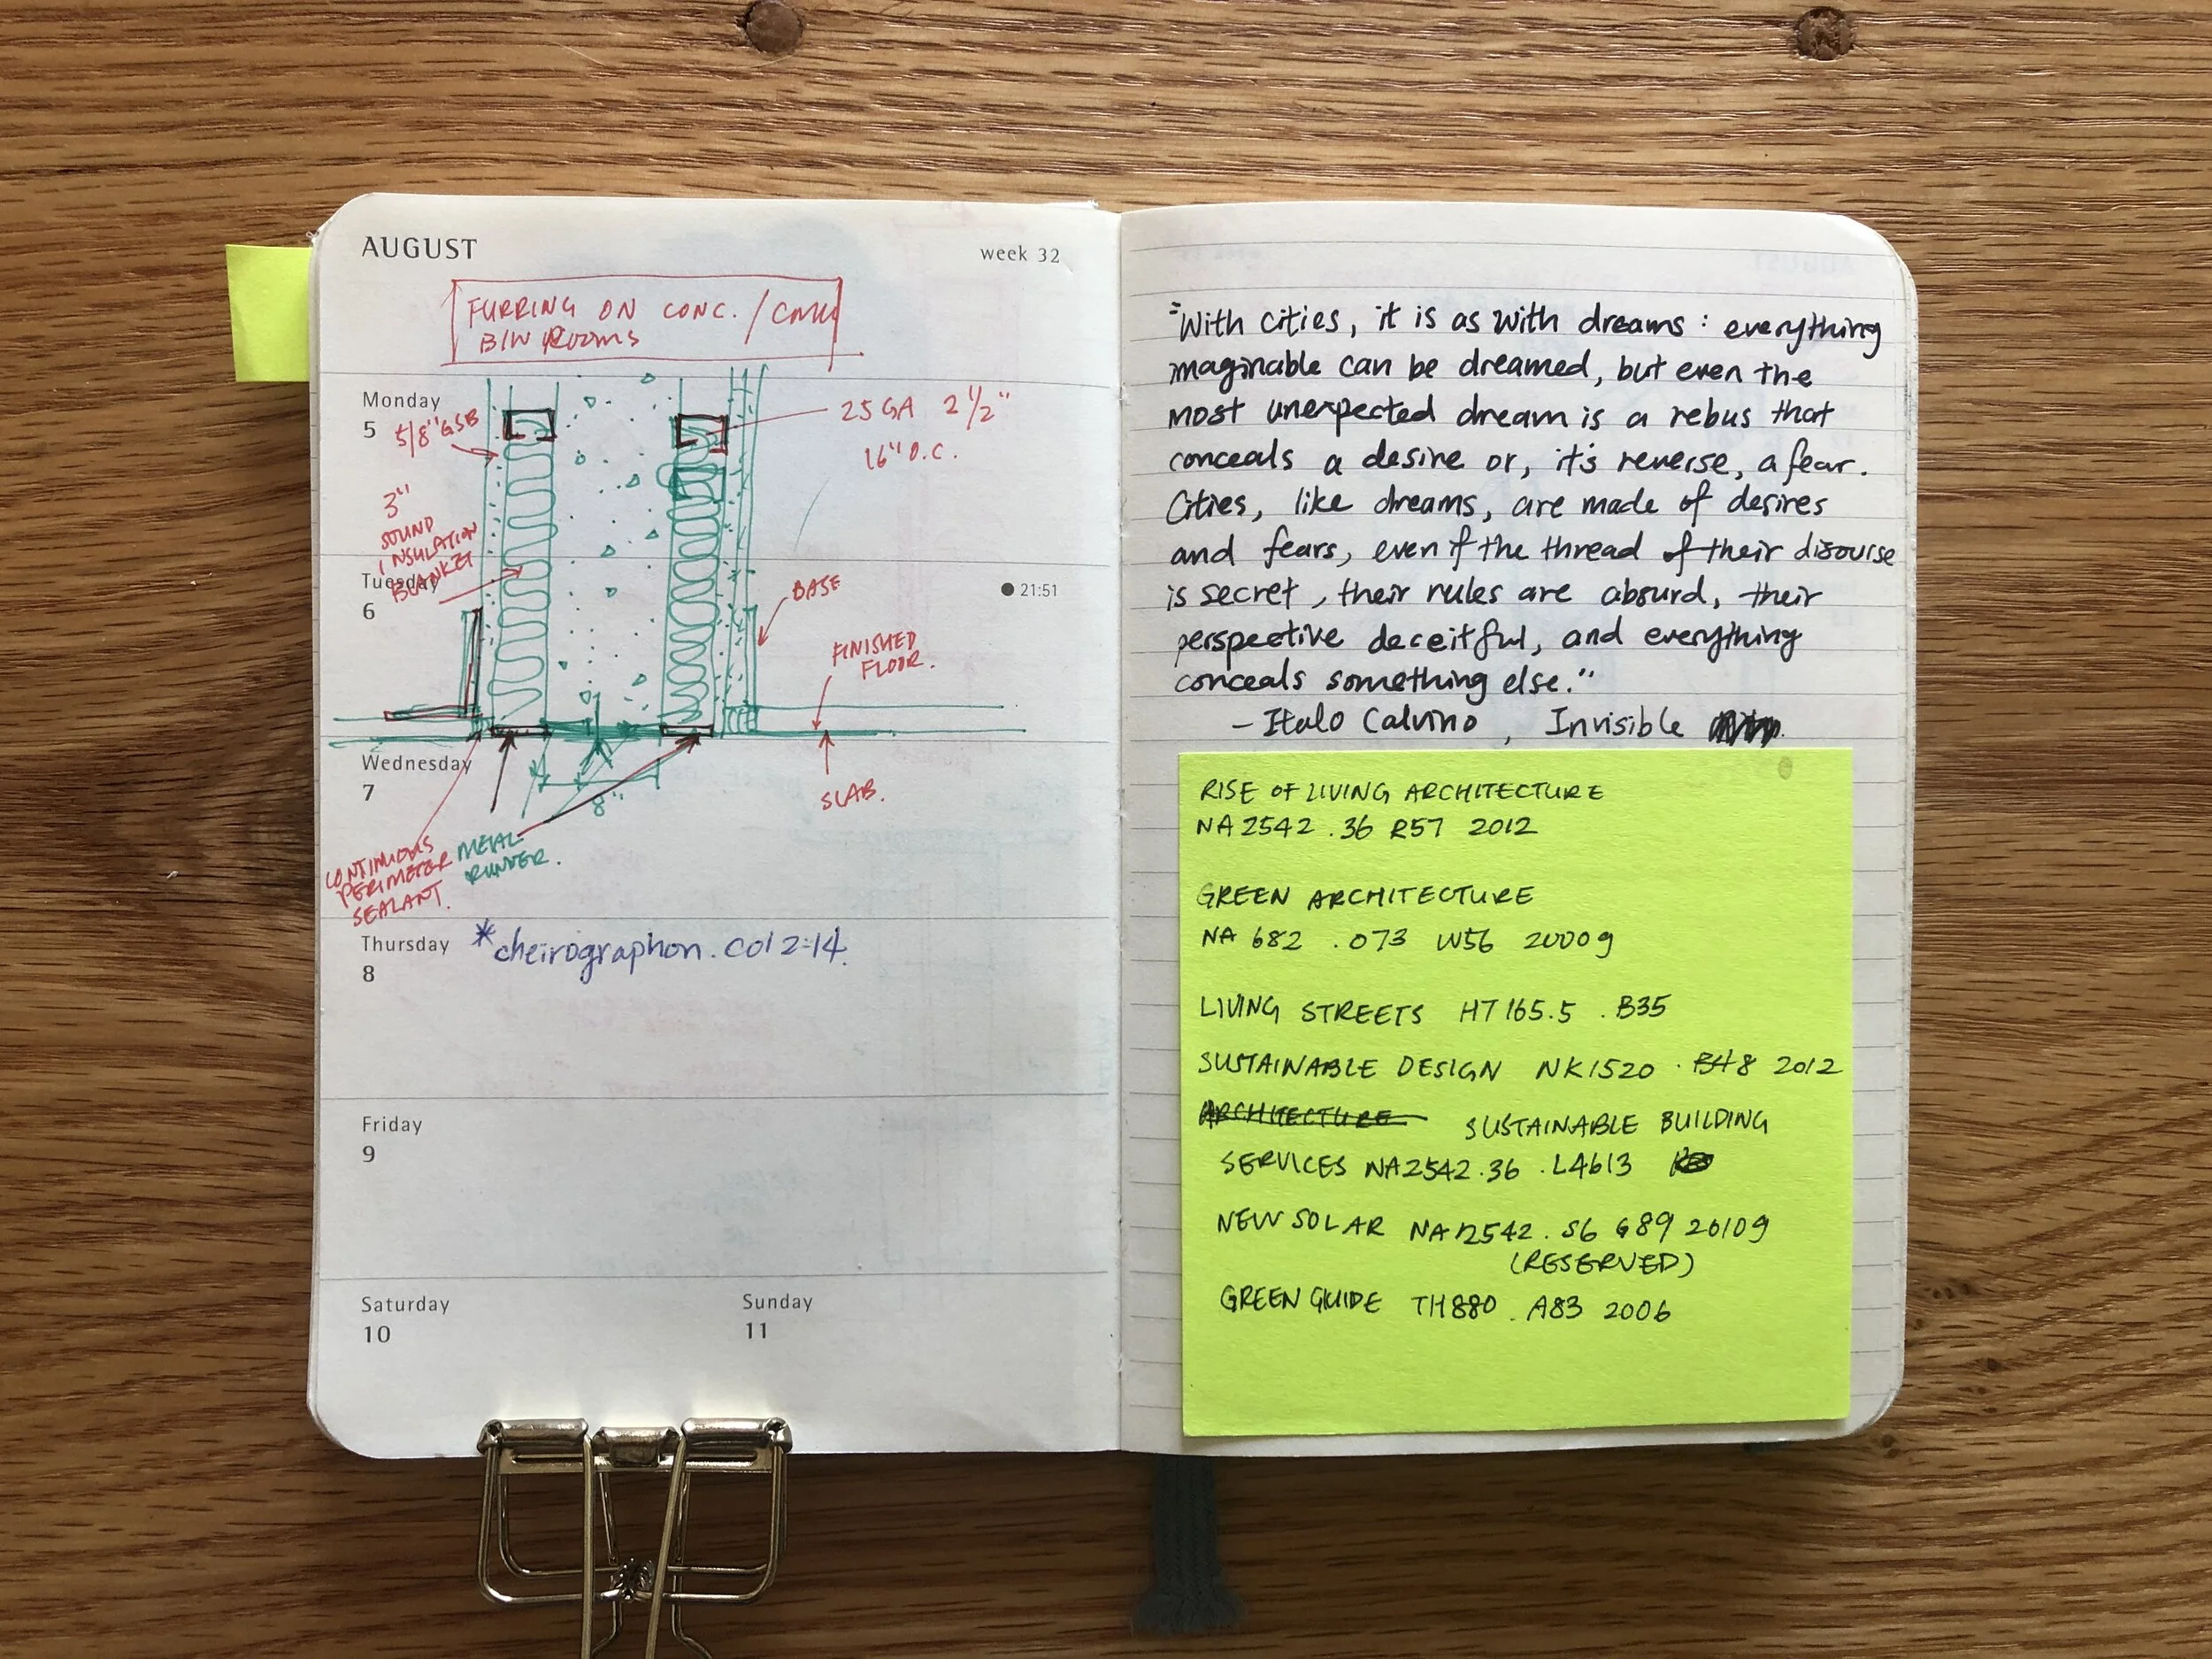 AUGUST
week 32
FURRING ON CONC. / CMU
B/W ROOMS
Monday
5
5/8" GSB
25 GA 2 1/2"
16" O.C.
3"
SOUND
INSULATION
BLANKET
Tuesday
6
21:51
BASE
FINISHED
FLOOR.
Wednesday
7
8"
SLAB.
CONTINUOUS
PERIMETER
SEALANT.
METAL
RUNNER.
Thursday
8
*cheirographon. Col 2:14.
Friday
9
Saturday
10
Sunday
11
"With cities, it is as with dreams: everything
imaginable can be dreamed, but even the
most unexpected dream is a rebus that
conceals a desire or, it's reverse, a fear.
Cities, like dreams, are made of desires
and fears, even if the thread of their disourse
is secret, their rules are absurd, their
perspective deceitful, and everything
conceals something else."
- Italo Calvino, Invisible
RISE OF LIVING ARCHITECTURE
NA 2542 .36 R57 2012
GREEN ARCHITECTURE
NA 682 .073 W56 2000g
LIVING STREETS HT 165.5 .B35
SUSTAINABLE DESIGN NK1520 .B48 2012
ARCHITECTURE SUSTAINABLE BUILDING
SERVICES NA2542.36 .L4613
NEW SOLAR NA2542.S6 G89 2010g
(RESERVED)
GREEN GUIDE TH880 .A83 2006